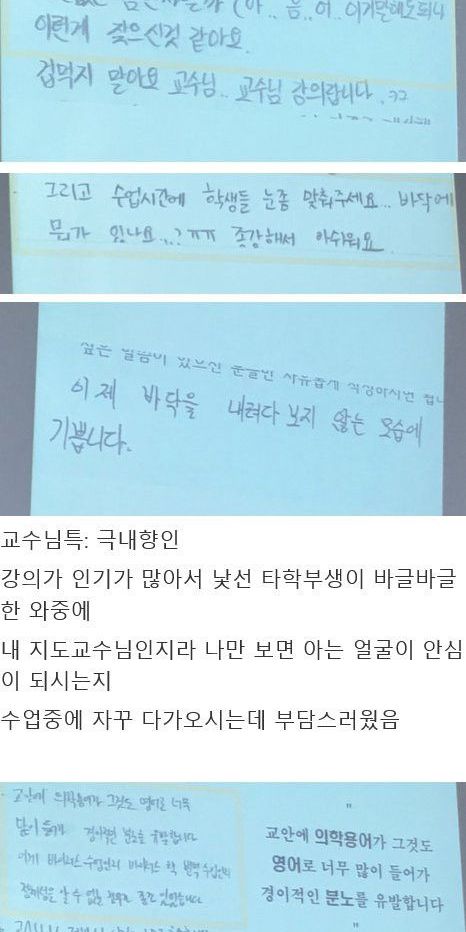 이런게 잦으신것 같아요.
겁먹지 말아요 교수님.. 교수님 강의랍니다. ㅋㅋ
그리고 수업시간에 학생들 눈좀 맞춰주세요.. 바닥에
뭔가 있나요..? ㅠㅠ 종강해서 아쉬워요
이제 바닥을 내려다 보지 않는 모습에
기쁩니다.
교수님특: 극내향인
강의가 인기가 많아서 낯선 타학부생이 바글바글
한 와중에
내 지도교수님인지라 나만 보면 아는 얼굴이 안심
이 되시는지
수업중에 자꾸 다가오시는데 부담스러웠음
교안에 의학용어가 그것도 영어로 너무
많이 들어가 경이적인 분노를 유발합니다
"
교안에 의학용어가 그것도
영어로 너무 많이 들어가
경이적인 분노를 유발합니다
"